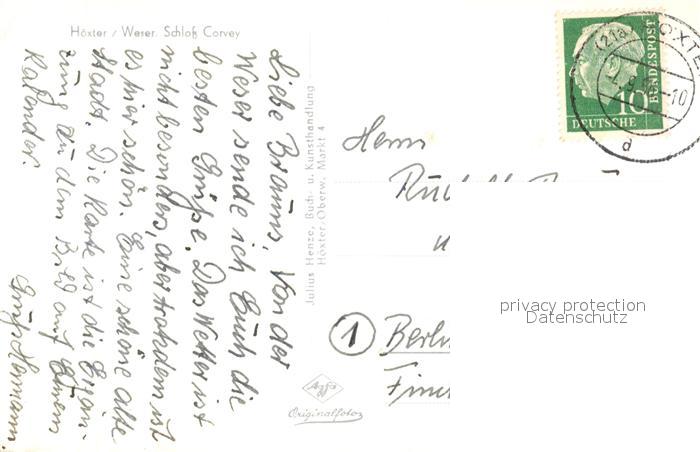 Höxter / Weser. Schloß Corvey
Liebe Brauns, Von der
Weser sende ich Euch die
besten Grüße. Das Wetter ist
nicht besonders, aber trotzdem ist
es hier schön. Eine schöne alte
Stadt. Die Karte ist die Ergän-
zung zu dem Bild auf Eurem
Kalender.
Gruß Hermann.
Julius Henze, Buch- u. Kunsthandlung
Höxter, Oberw. Markt 4
Agfa
Originalfoto
DEUTSCHE
BUNDESPOST
10
(21a) HÖXTE
-10
d
Herrn
u
1 Berlin
privacy protection
Datenschutz